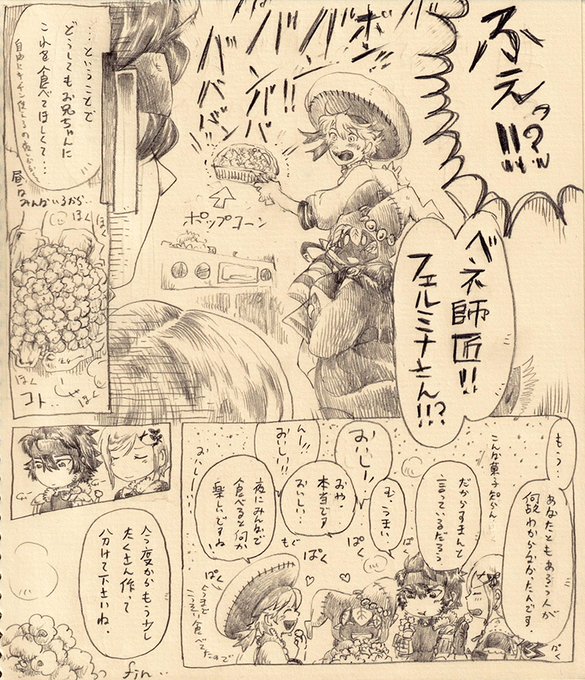 ふえっ!?!!
ベネ師匠!!
フェルミナさん!!!?
ボンッ!!
バババババババ
ポップコーン
…ということで
どうしてもお兄ちゃんに
これを食べてほしくて…
昼はみんないるから…
ぱく
ぱく
ぱく
コト…
もう
あなたともあろう人が
何故わからなかったんです.
こんな菓子知らん
だからすまんと
言っているだろう
む.うまい.
おいしー
おや.
本当です
おいしい…
んー!!
おいしー!!
夜にみんなで
食べると何か
楽しいですね
おいしー
もぐ
ぱく
ぱく
ぱく
ぱく
今度からもう少し
たくさん作って
分けて下さいね.
fin…